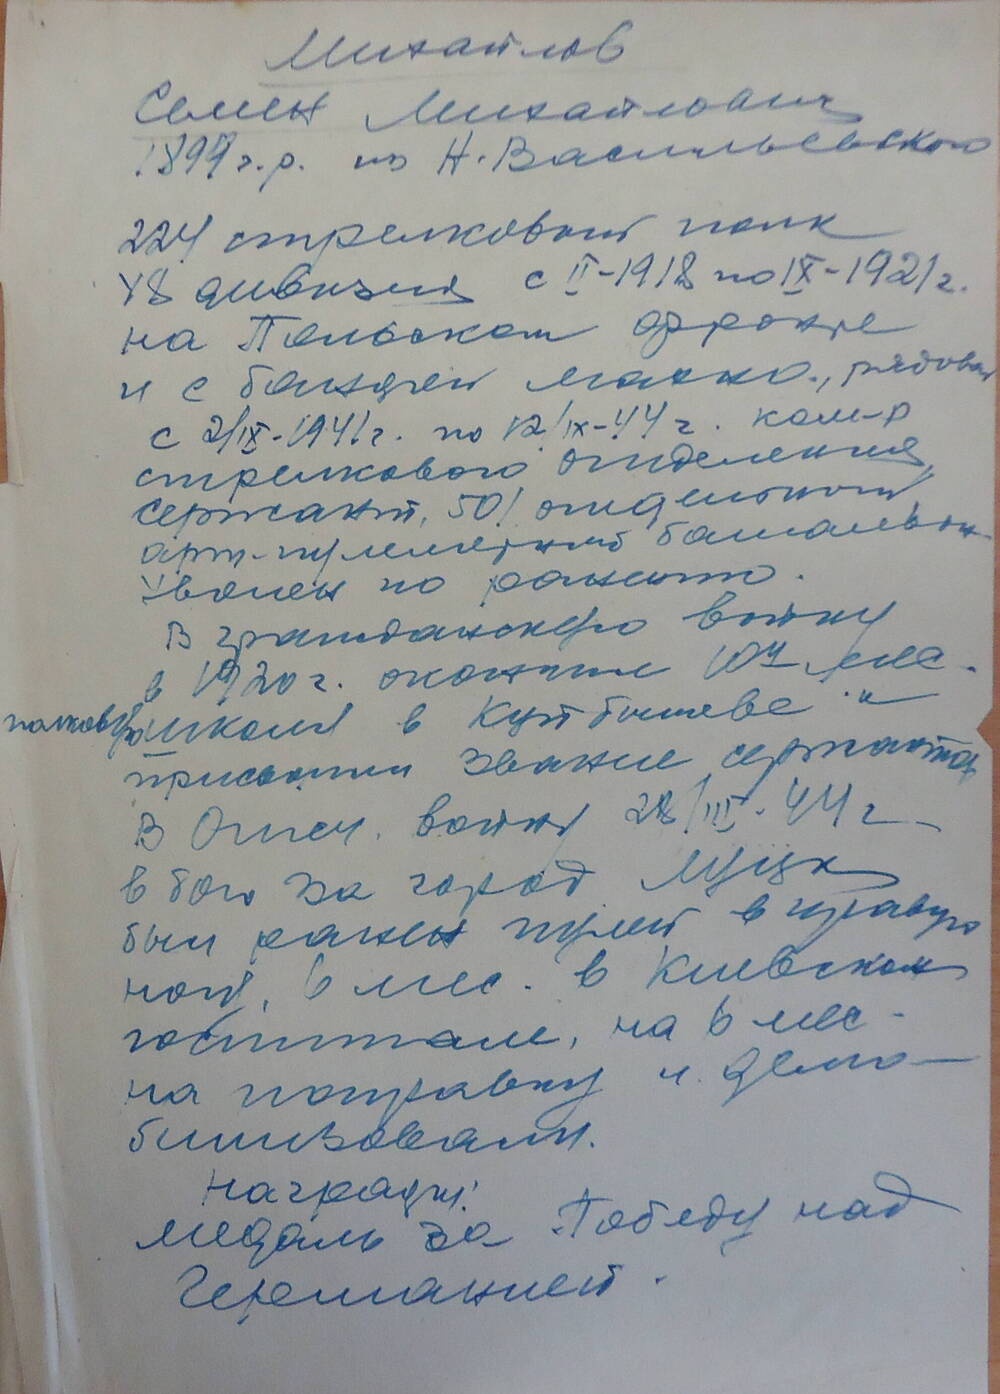 Михайлов
Семен Михайлович
1899 г.р. из Н. Васильевского
224 стрелковый полк
48 дивизия с II-1918 по IX-1921 г.
на Польском фронте
и с бандой Махно, рядовой
с 2/IX-1941 г. по 12/IX-44 г. ком-р
стрелкового отделения,
сержант, 501 отдельный
арт-пулеметный батальон.
Уволен по ранению.
В гражданскую войну
в 1920 г. окончил 10ч мес.
полковую школу в Куйбышеве и
присвоили звание сержанта
В Отеч. войну 28/III-44 г.
в бою за город Луцк
был ранен пулей в правую
ногу, 6 мес. в Киевском
госпитале, на 6 мес.
на поправку и демо-
билизовали.
Награды:
медаль за Победу над
Германией.